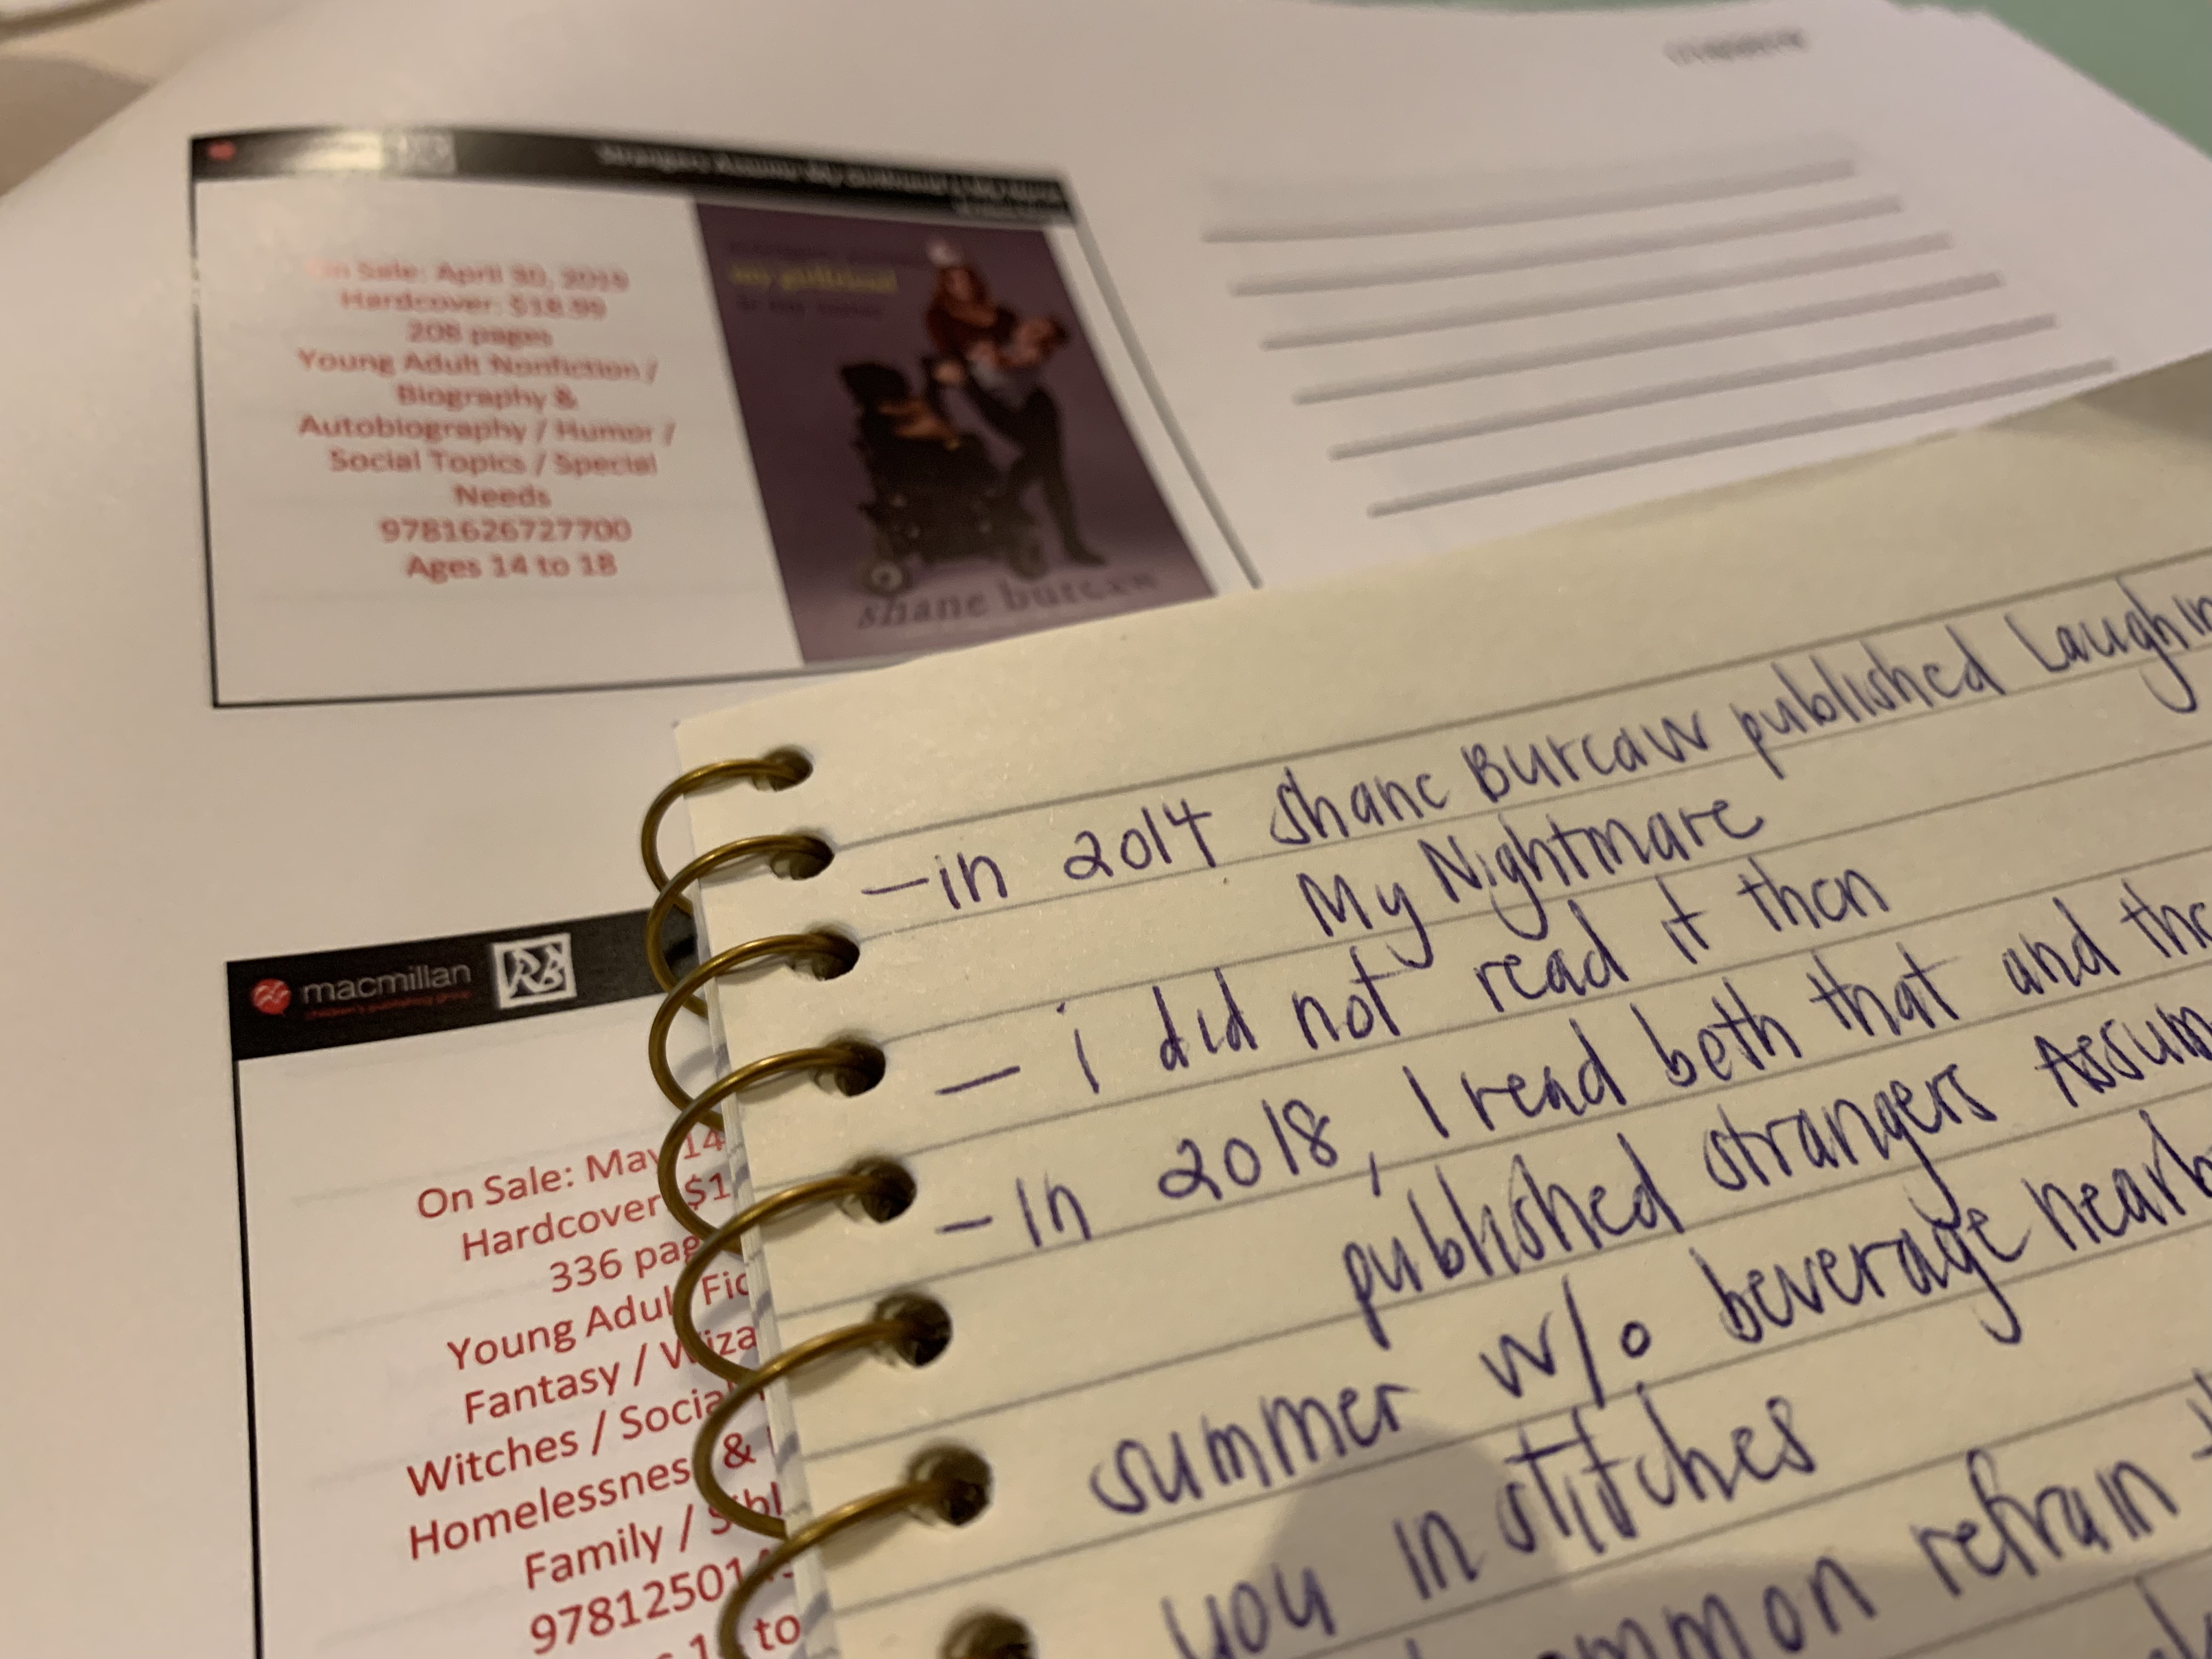 Strangers Assume My Girlfriend Is My Nurse
On Sale: April 30, 2019
Hardcover: $18.99
208 pages
Young Adult Nonfiction /
Biography &
Autobiography / Humor /
Social Topics / Special
Needs
9781626727700
Ages 14 to 18
my girlfriend
is my nurse
shane burcaw
macmillan
children's publishing group
RB
On Sale: May 14
Hardcover $1
336 pag
Young Adul Fic
Fantasy / Wiza
Witches / Socia
Homelessness &
Family / Sibl
97812501
to
—in 2014 Shane Burcaw published Laughin
My Nightmare
— i did not read it then
—In 2018, I read both that and the
published strangers Assum
summer w/o beverage nearb
you in stitches
ommon refrain